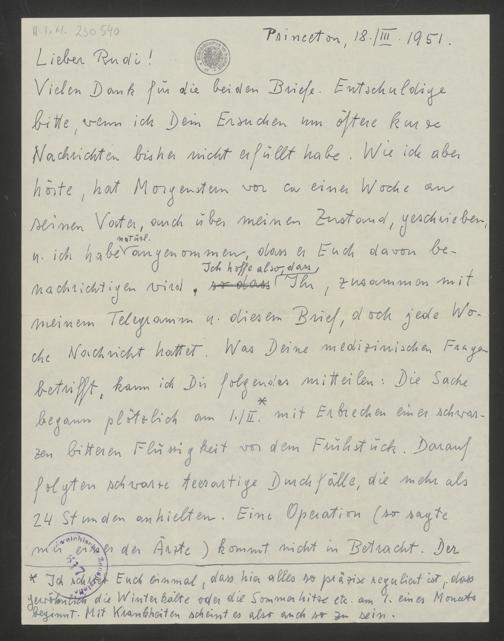 H. I. N. 230540
Princeton, 18./III. 1951.
Lieber Rudi!
Vielen Dank für die beiden Briefe. Entschuldige
bitte, wenn ich Dein Ersuchen um öftere kurze
Nachrichten bisher nicht erfüllt habe. Wie ich aber
hörte, hat Morgenstern vor ca einer Woche an
seinen Vater, auch über meinen Zustand, geschrieben,
u. ich habe natürl. angenommen, dass er Euch davon be-
nachrichtigen wird. so dass Ich hoffe also, dass Ihr, zusammen mit
meinem Telegramm u. diesem Brief, doch jede Wo-
che Nachricht hattet. Was Deine medizinischen Fragen
betrifft, kann ich Dir folgendes mitteilen: Die Sache
begann plötzlich am 1./II.* mit Erbrechen einer schwar-
zen bitteren Flüssigkeit vor dem Frühstück. Darauf
folgten schwarze teerartige Durchfälle, die mehr als
24 Stunden anhielten. Eine Operation (so sagte
mir einer der Ärzte) kommt nicht in Betracht. Der
* Ich schrieb Euch einmal, dass hier alles so präzise reguliert ist, dass
gewöhnlich die Winterkälte oder die Sommerhitze etc. am 1. eines Monats
beginnt. Mit Krankheiten scheint es also auch so zu sein.